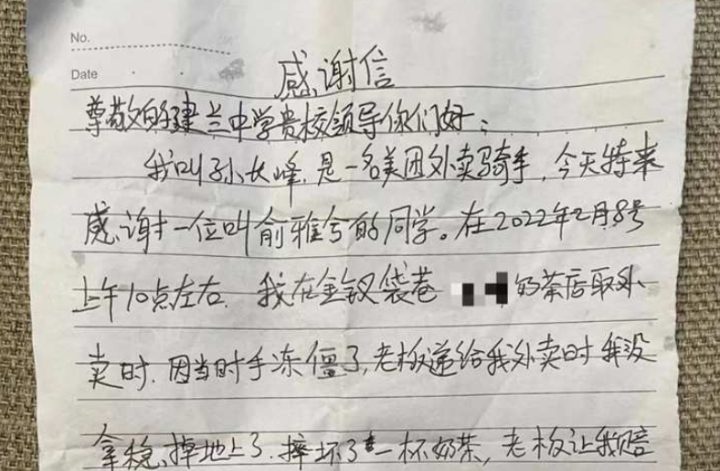 No.
Date
感谢信
尊敬的建兰中学贵校领导你们好：
我叫孙大峰，是一名美团外卖骑手，今天特来
感谢一位叫俞雅兮的同学。在2022年2月8号
上午10点左右，我在金钗袋巷 奶茶店取外
卖时，因当时手冻僵了，老板递给我外卖时我没
拿稳，掉地上了，摔坏了一杯奶茶，老板让我赔